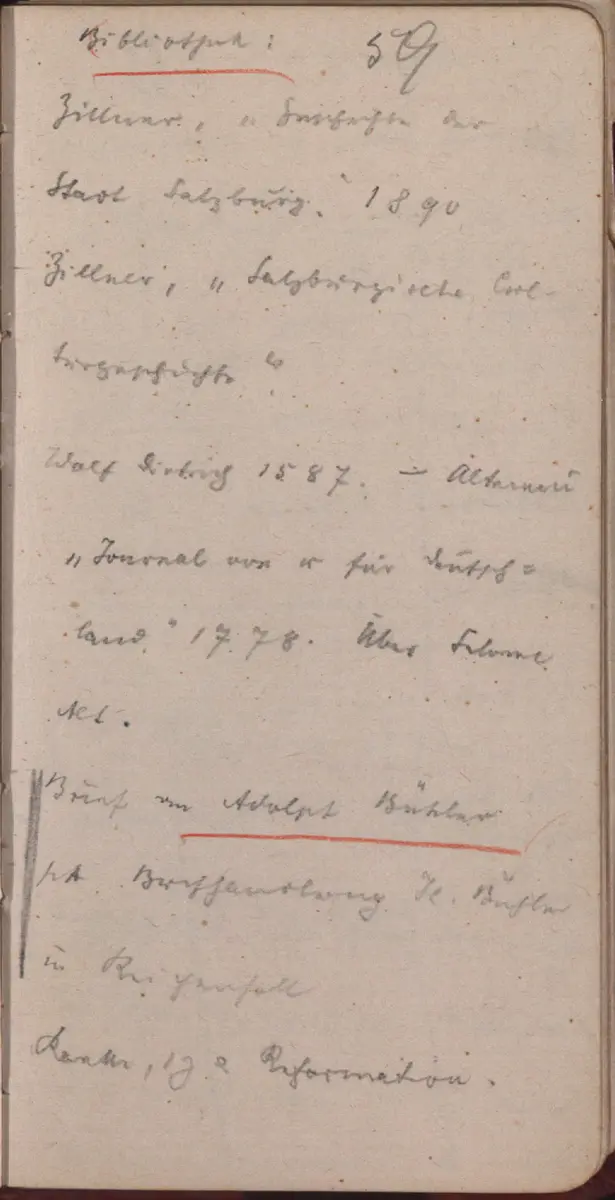 Bibliothek: 59
Zillner, „Geschichte der
Stadt Salzburg." 1890
Zillner, „Salzburgische Cul-
turgeschichte"
Wolf Dietrich 1587. — Altenau
„Journal von u für Deutsch=
land." 1778. Über Salome
Alt.
Brief an Adolph Bühler
Buchhandlung H. Bühler
in Reichenhall
Ranke, Reformation.